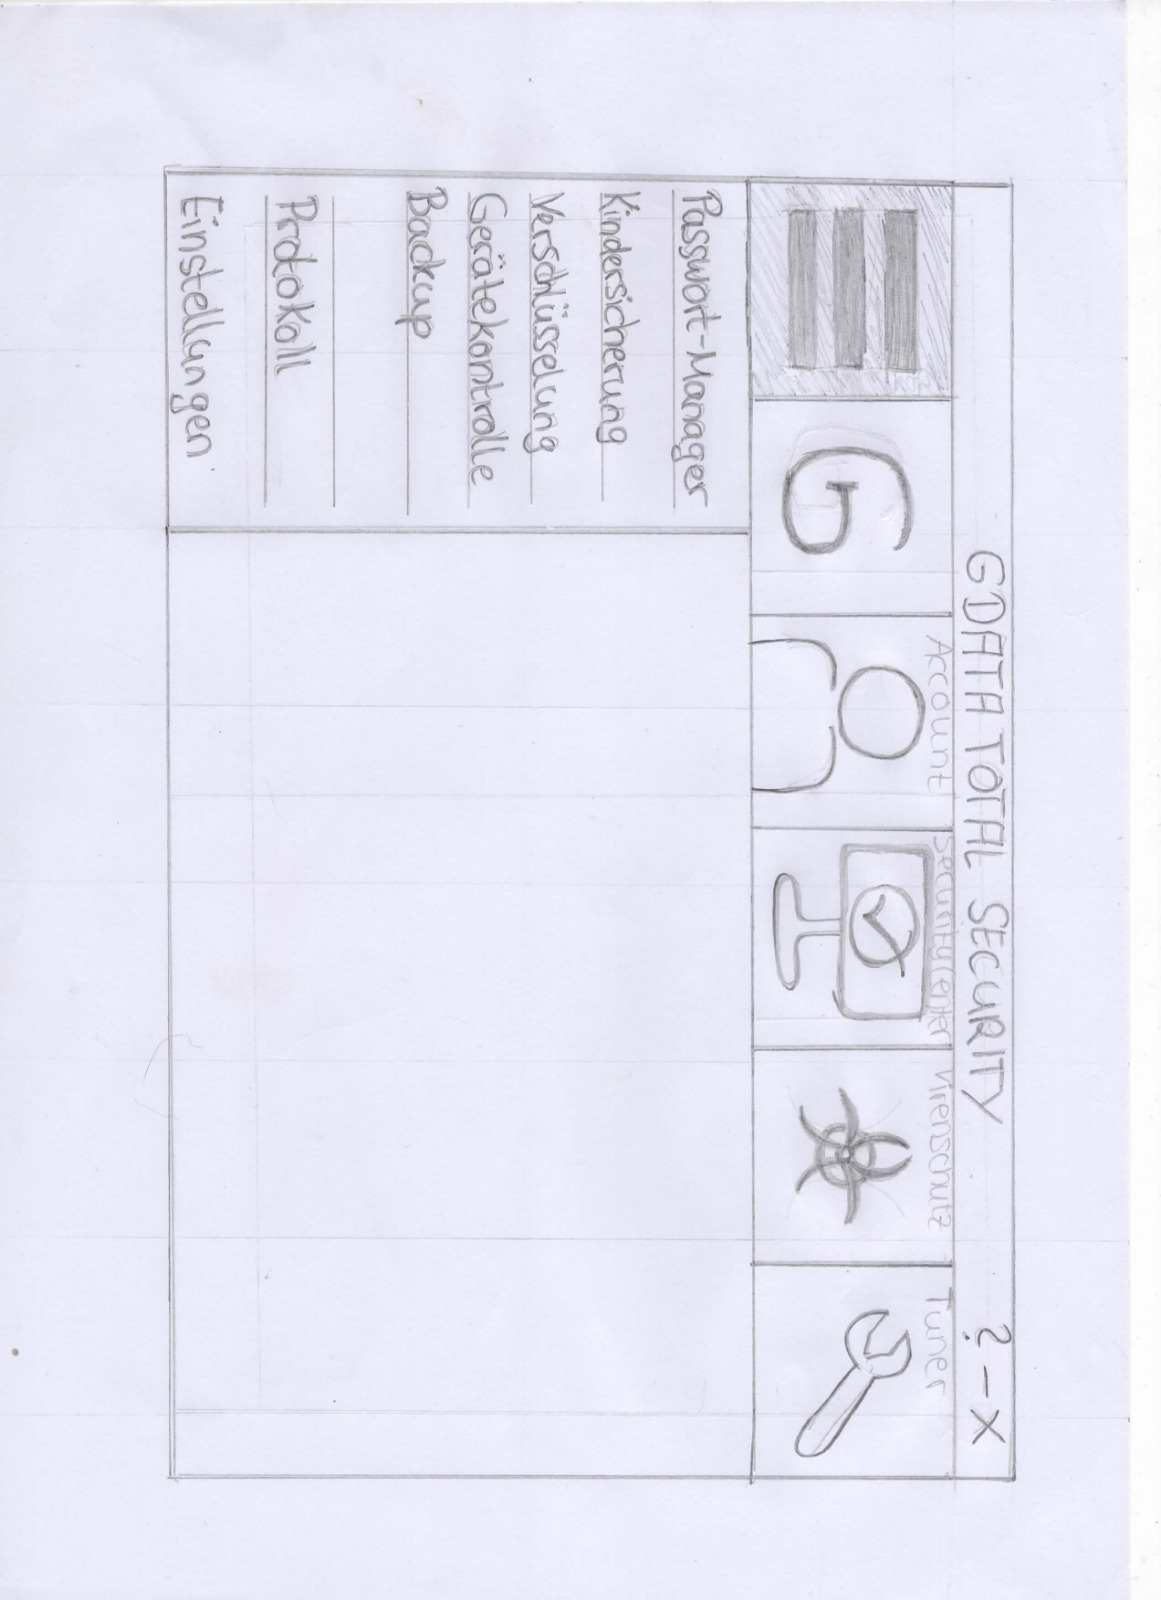 GDATA TOTAL SECURITY
? - X
G
Account
SecurityCenter
Virenschutz
Tuner
Passwort-Manager
Kindersicherung
Verschlüsselung
Gerätekontrolle
Backup
Protokoll
Einstellungen